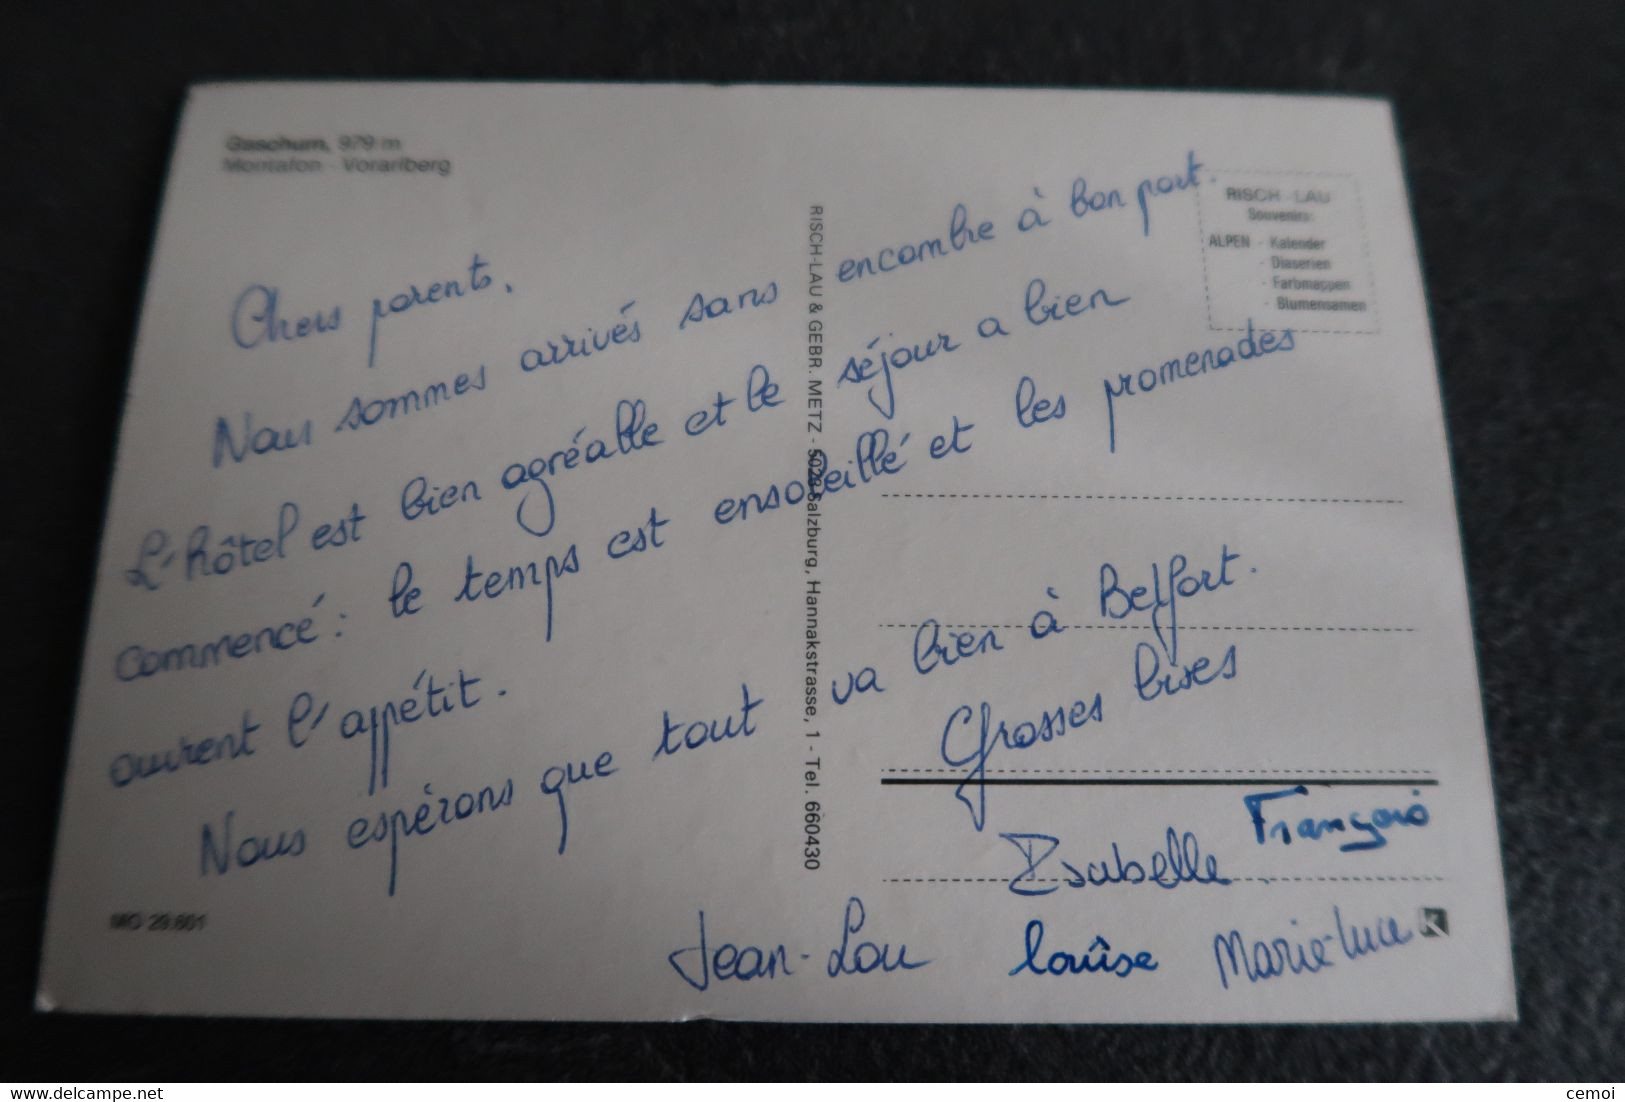 Gaschurn, 979 m
Montafon - Vorarlberg
Chers parents,
Nous sommes arrivés sans encombre à bon port.
L'hôtel est bien agréable et le séjour a bien
commencé : le temps est ensoleillé et les promenades
ouvrent l'appétit.
Nous espérons que tout va bien à Belfort.
Grosses bises
François
Isabelle
Jean-Lou louise Marie-Luce
MO 29.601
RISCH-LAU & GEBR. METZ - 5023 Salzburg, Hannakstrasse, 1 - Tel. 660430
RISCH-LAU
Souvenirs:
ALPEN - Kalender
- Diaserien
- Farbmappen
- Blumensamen
K
www.delcampe.net
cemoi